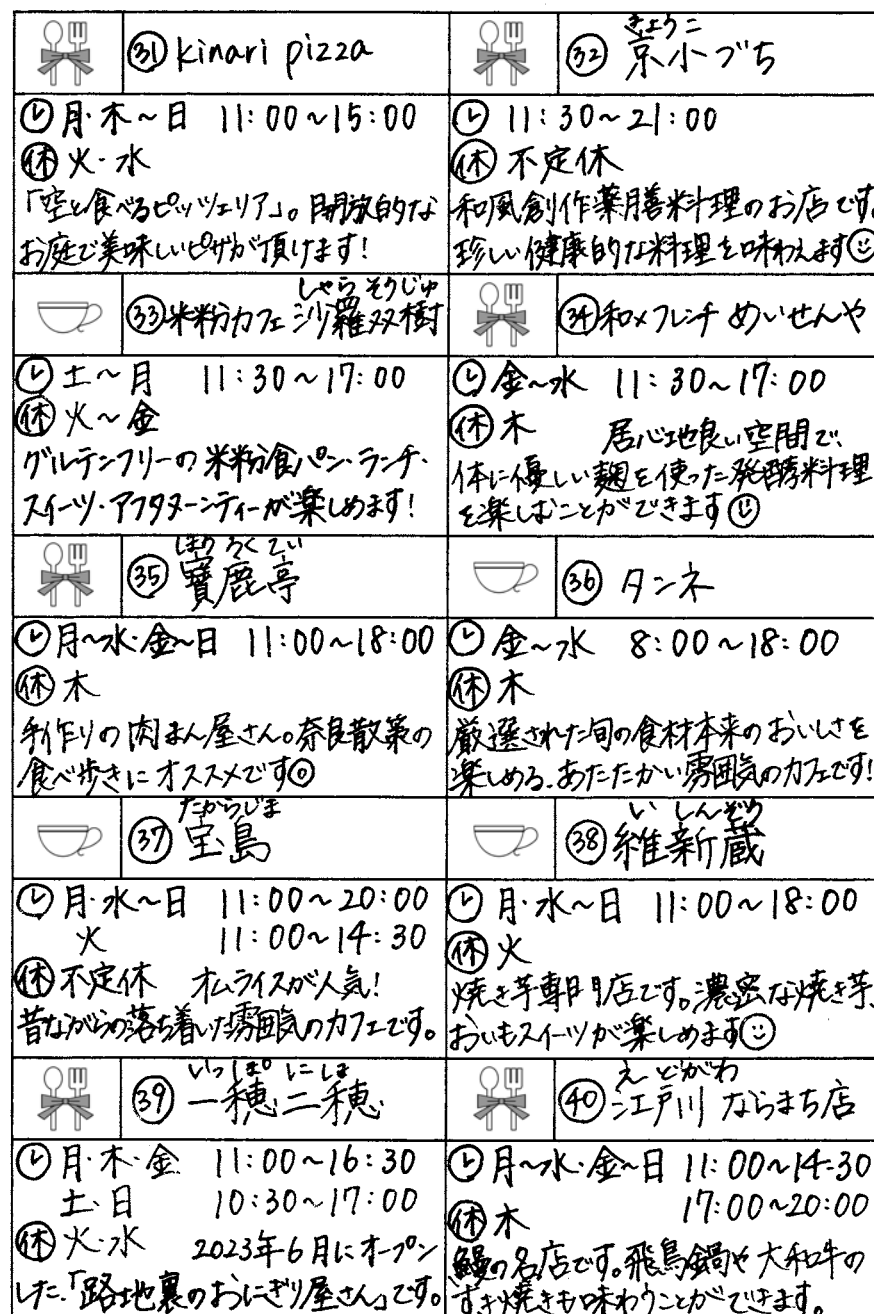 ㉛ kinari pizza
月・木～日 11:00～15:00
休 火・水
「空と食べるピッツェリア」。開放的な
お庭で美味しいピザが頂けます!
きょうこ
㉜ 京小づち
11:30～21:00
休 不定休
和風創作薬膳料理のお店です。
珍しい健康的な料理を味わえます☺
しゃら そうじゅ
㉝ 米粉カフェ 沙羅双樹
土～月 11:30～17:00
休 火～金
グルテンフリーの米粉食パン・ランチ・
スイーツ・アフタヌーンティーが楽しめます!
㉞ 和×フレンチ めいせんや
金～水 11:30～17:00
休 木 居心地良い空間で、
体に優しい麹を使った発酵料理
を楽しむことができます☺
ほうろくてい
㉟ 寶鹿亭
月～水・金～日 11:00～18:00
休 木
手作りの肉まん屋さん。奈良散策の
食べ歩きにオススメです◎
㊱ タンネ
金～水 8:00～18:00
休 木
厳選された旬の食材本来のおいしさを
楽しめる、あたたかい雰囲気のカフェです!
たからじま
㊲ 宝島
月・水～日 11:00～20:00
火 11:00～14:30
休 不定休 オムライスが人気!
昔ながらの落ち着いた雰囲気のカフェです。
い しんぞう
㊳ 維新蔵
月・水～日 11:00～18:00
休 火
焼き芋専門店です。濃密な焼き芋、
おいもスイーツが楽しめます☺
いっぽ にほ
㊴ 一穂二穂
月・木・金 11:00～16:30
土・日 10:30～17:00
休 火・水 2023年6月にオープン
した、「路地裏のおにぎり屋さん」です。
えどがわ
㊵ 江戸川 ならまち店
月～水・金～日 11:00～14:30
17:00～20:00
休 木
鰻の名店です。飛鳥鍋や大和牛の
すき焼きも味わうことができます。